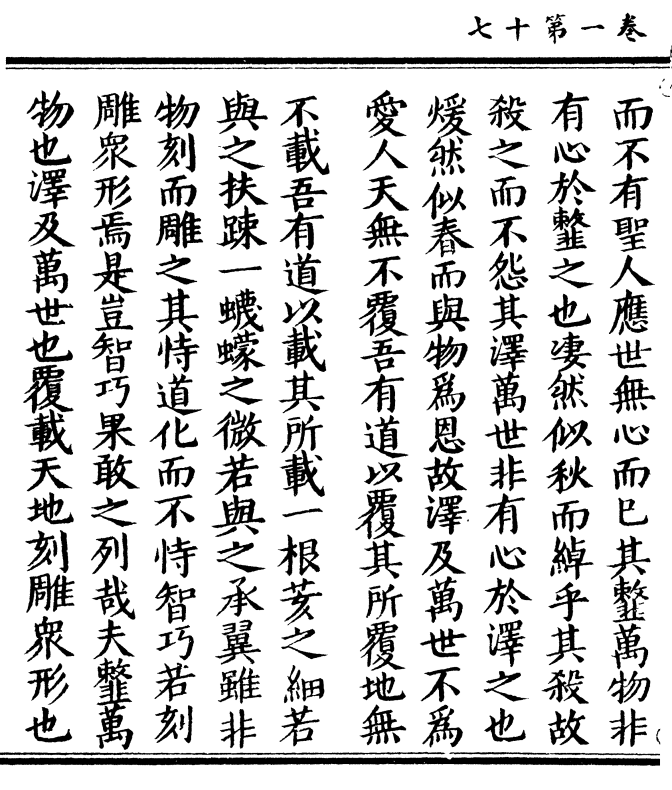 卷一第十七
而不有聖人應世無心而已其䪠萬物非
有心於䪠之也凄然似秋而綽乎其殺故
殺之而不怨其澤萬世非有心於澤之也
煖然似春而與物爲恩故澤及萬世不爲
愛人天無不覆吾有道以覆其所覆地無
不載吾有道以載其所載一根荄之細若
與之扶踈一蠛蠓之微若與之承翼雖非
物刻而雕之其恃道化而不恃智巧若刻
雕衆形焉是豈智巧果敢之列哉夫䪠萬
物也澤及萬世也覆載天地刻雕衆形也